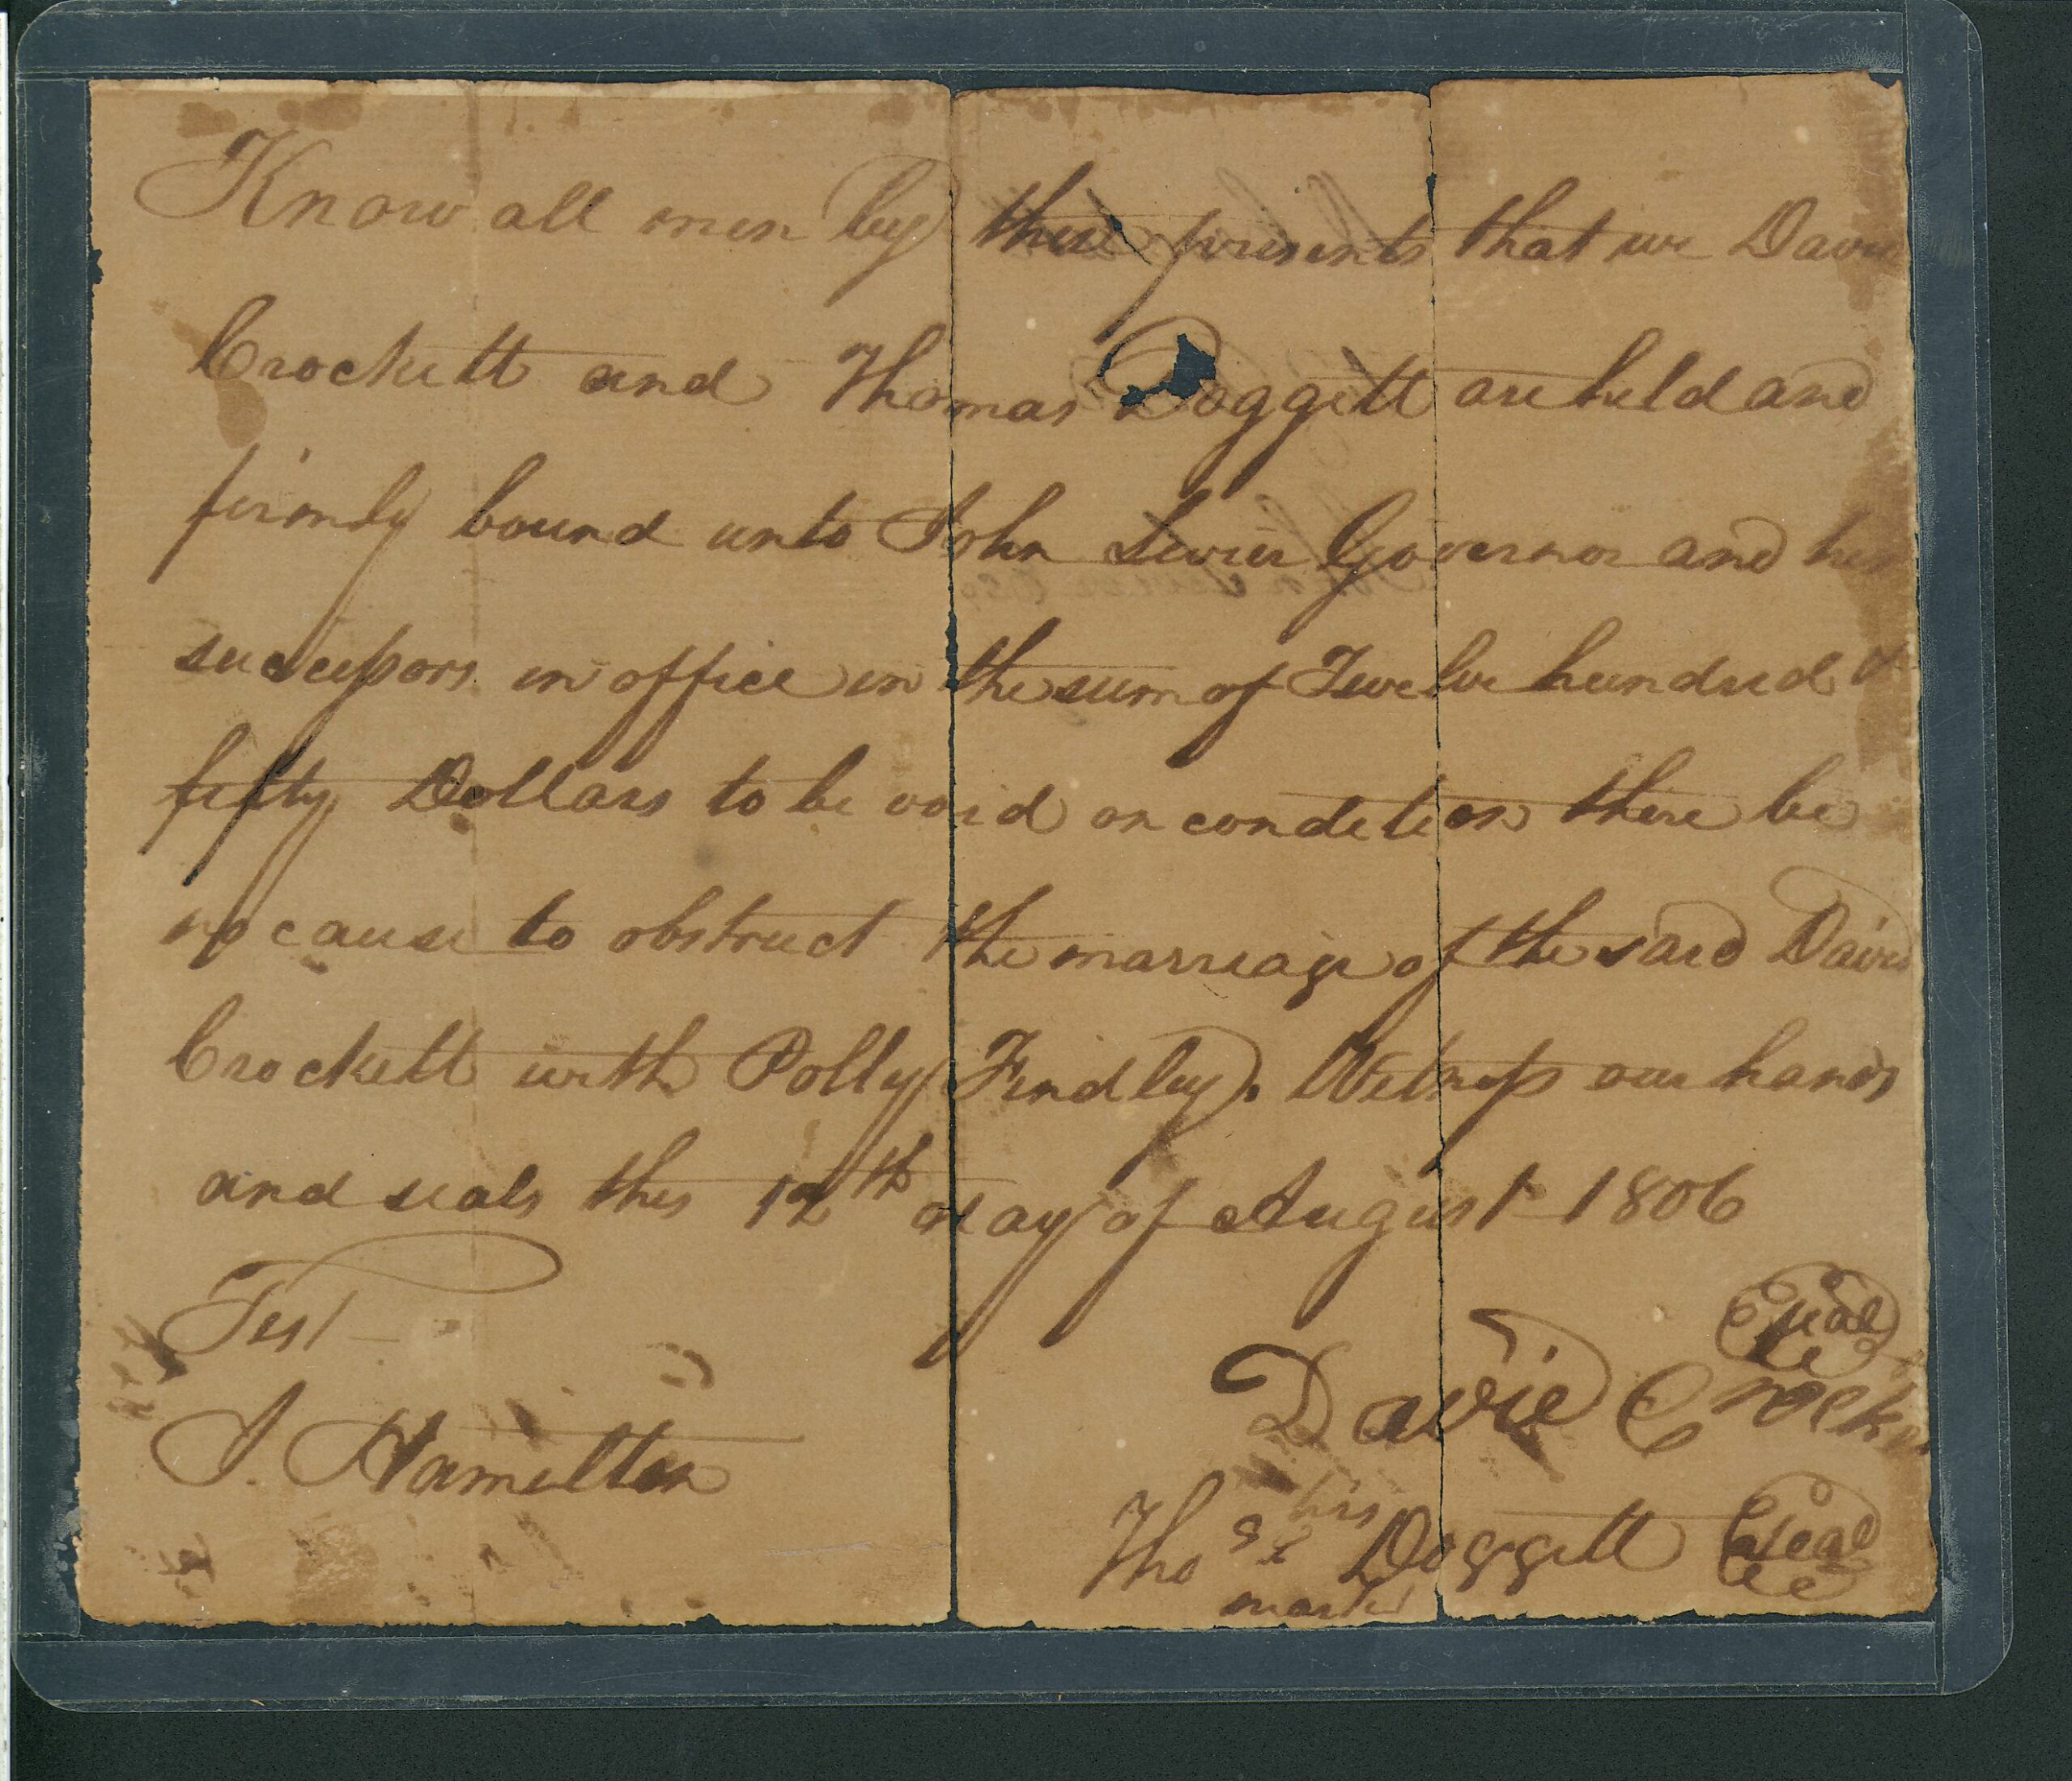 Know all men by these presents that we David
Crockett and Thomas Doggett are held and
firmly bound unto John Sevier Governor and his
successors in office in the sum of Twelve hundred &
fifty Dollars to be void on condition there be
no cause to obstruct the marriage of the said David
Crockett with Polly Findley. Witness our hands
and seals this 12th day of August 1806
Test
J. Hamilton
seal
David Crocket
his
Thos x Doggett seal
mark